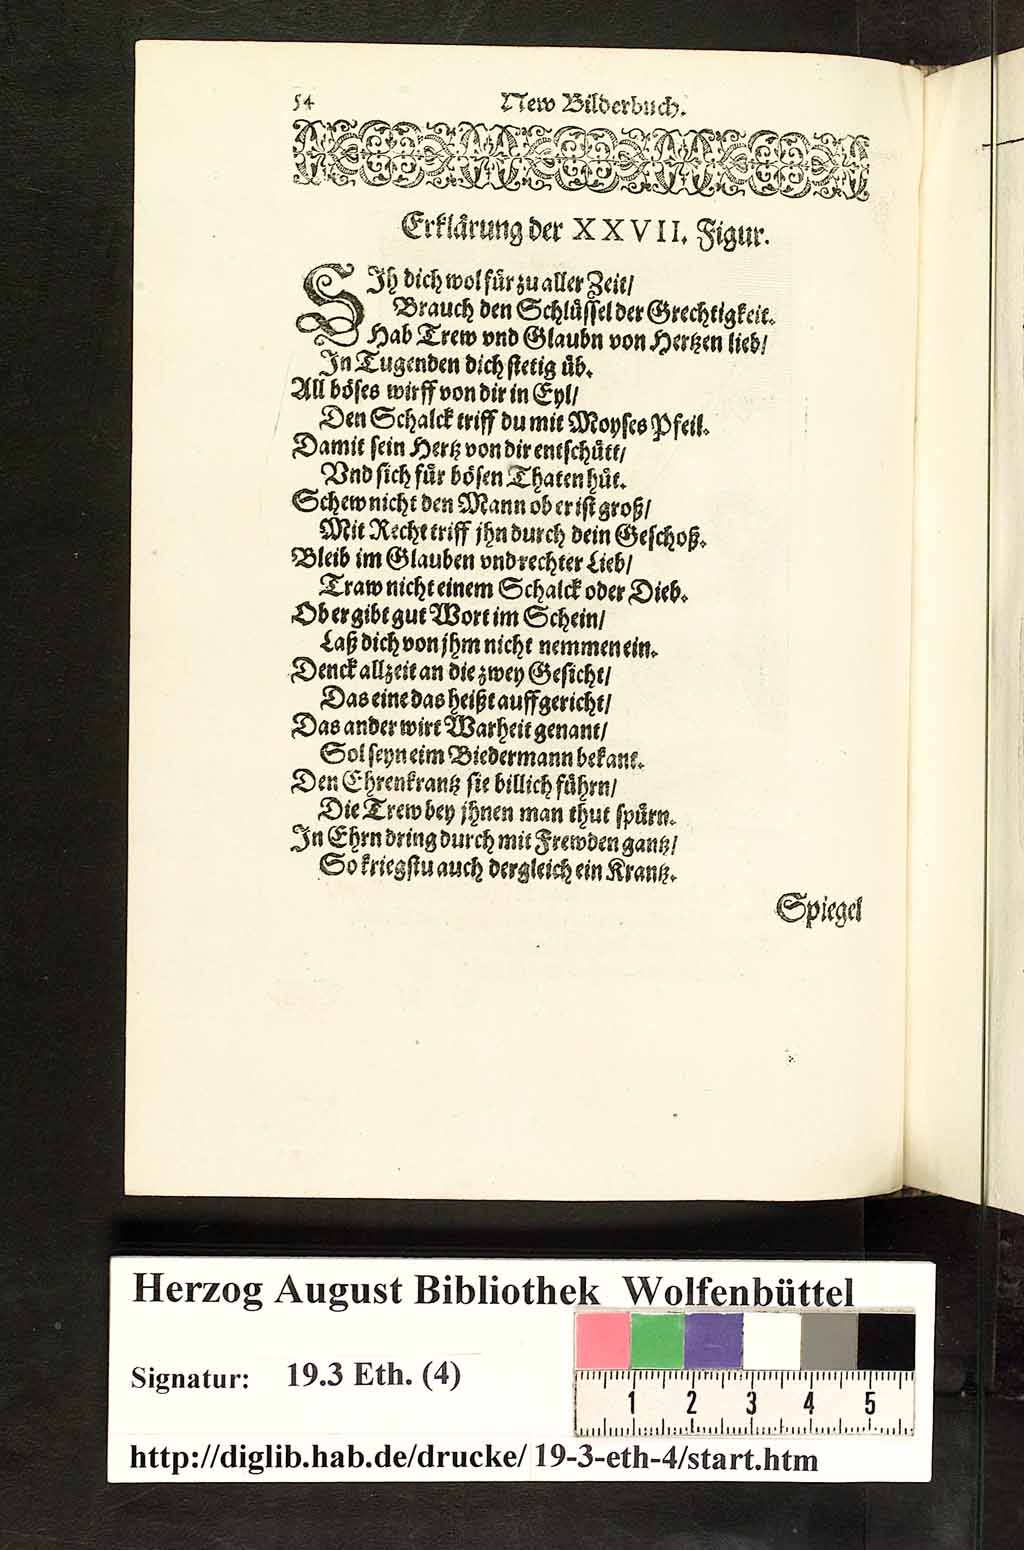 54
New Bilderbuch.
Erklärung der XXVII. Figur.
SIh dich wol für zu aller Zeit/
Brauch den Schlüssel der Grechtigkeit.
Hab Trew vnd Glaubn von Hertzen lieb/
In Tugenden dich stetig üb.
All böses wirff von dir in Eyl/
Den Schalck triff du mit Moyses Pfeil.
Damit sein Hertz von dir entschütt/
Vnd sich für bösen Thaten hüt.
Schew nicht den Mann ob er ist groß/
Mit Recht triff jhn durch dein Geschoß.
Bleib im Glauben vnd rechter Lieb/
Traw nicht einem Schalck oder Dieb.
Ob er gibt gut Wort im Schein/
Laß dich von jhm nicht nemmen ein.
Denck allzeit an die zwey Gesicht/
Das eine das heißt auffgericht/
Das ander wirt Warheit genant/
Sol seyn eim Biedermann bekant.
Den Ehrenkrantz sie billich führn/
Die Trew bey jhnen man thut spürn.
In Ehrn dring durch mit Frewden gantz/
So kriegstu auch dergleich ein Krantz.
Spiegel
Herzog August Bibliothek Wolfenbüttel
Signatur: 19.3 Eth. (4)
1 2 3 4 5
http://diglib.hab.de/drucke/ 19-3-eth-4/start.htm